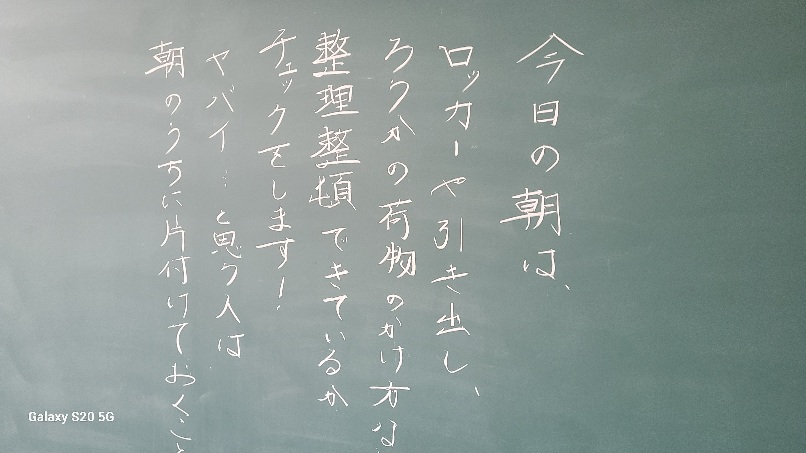 今日の朝は、
ロッカーや引き出し、
ろうかの荷物のかけ方な
整理整頓できているか
チェックをします!
ヤバイ…と思う人は
朝のうちに片付けておくこと
Galaxy S20 5G